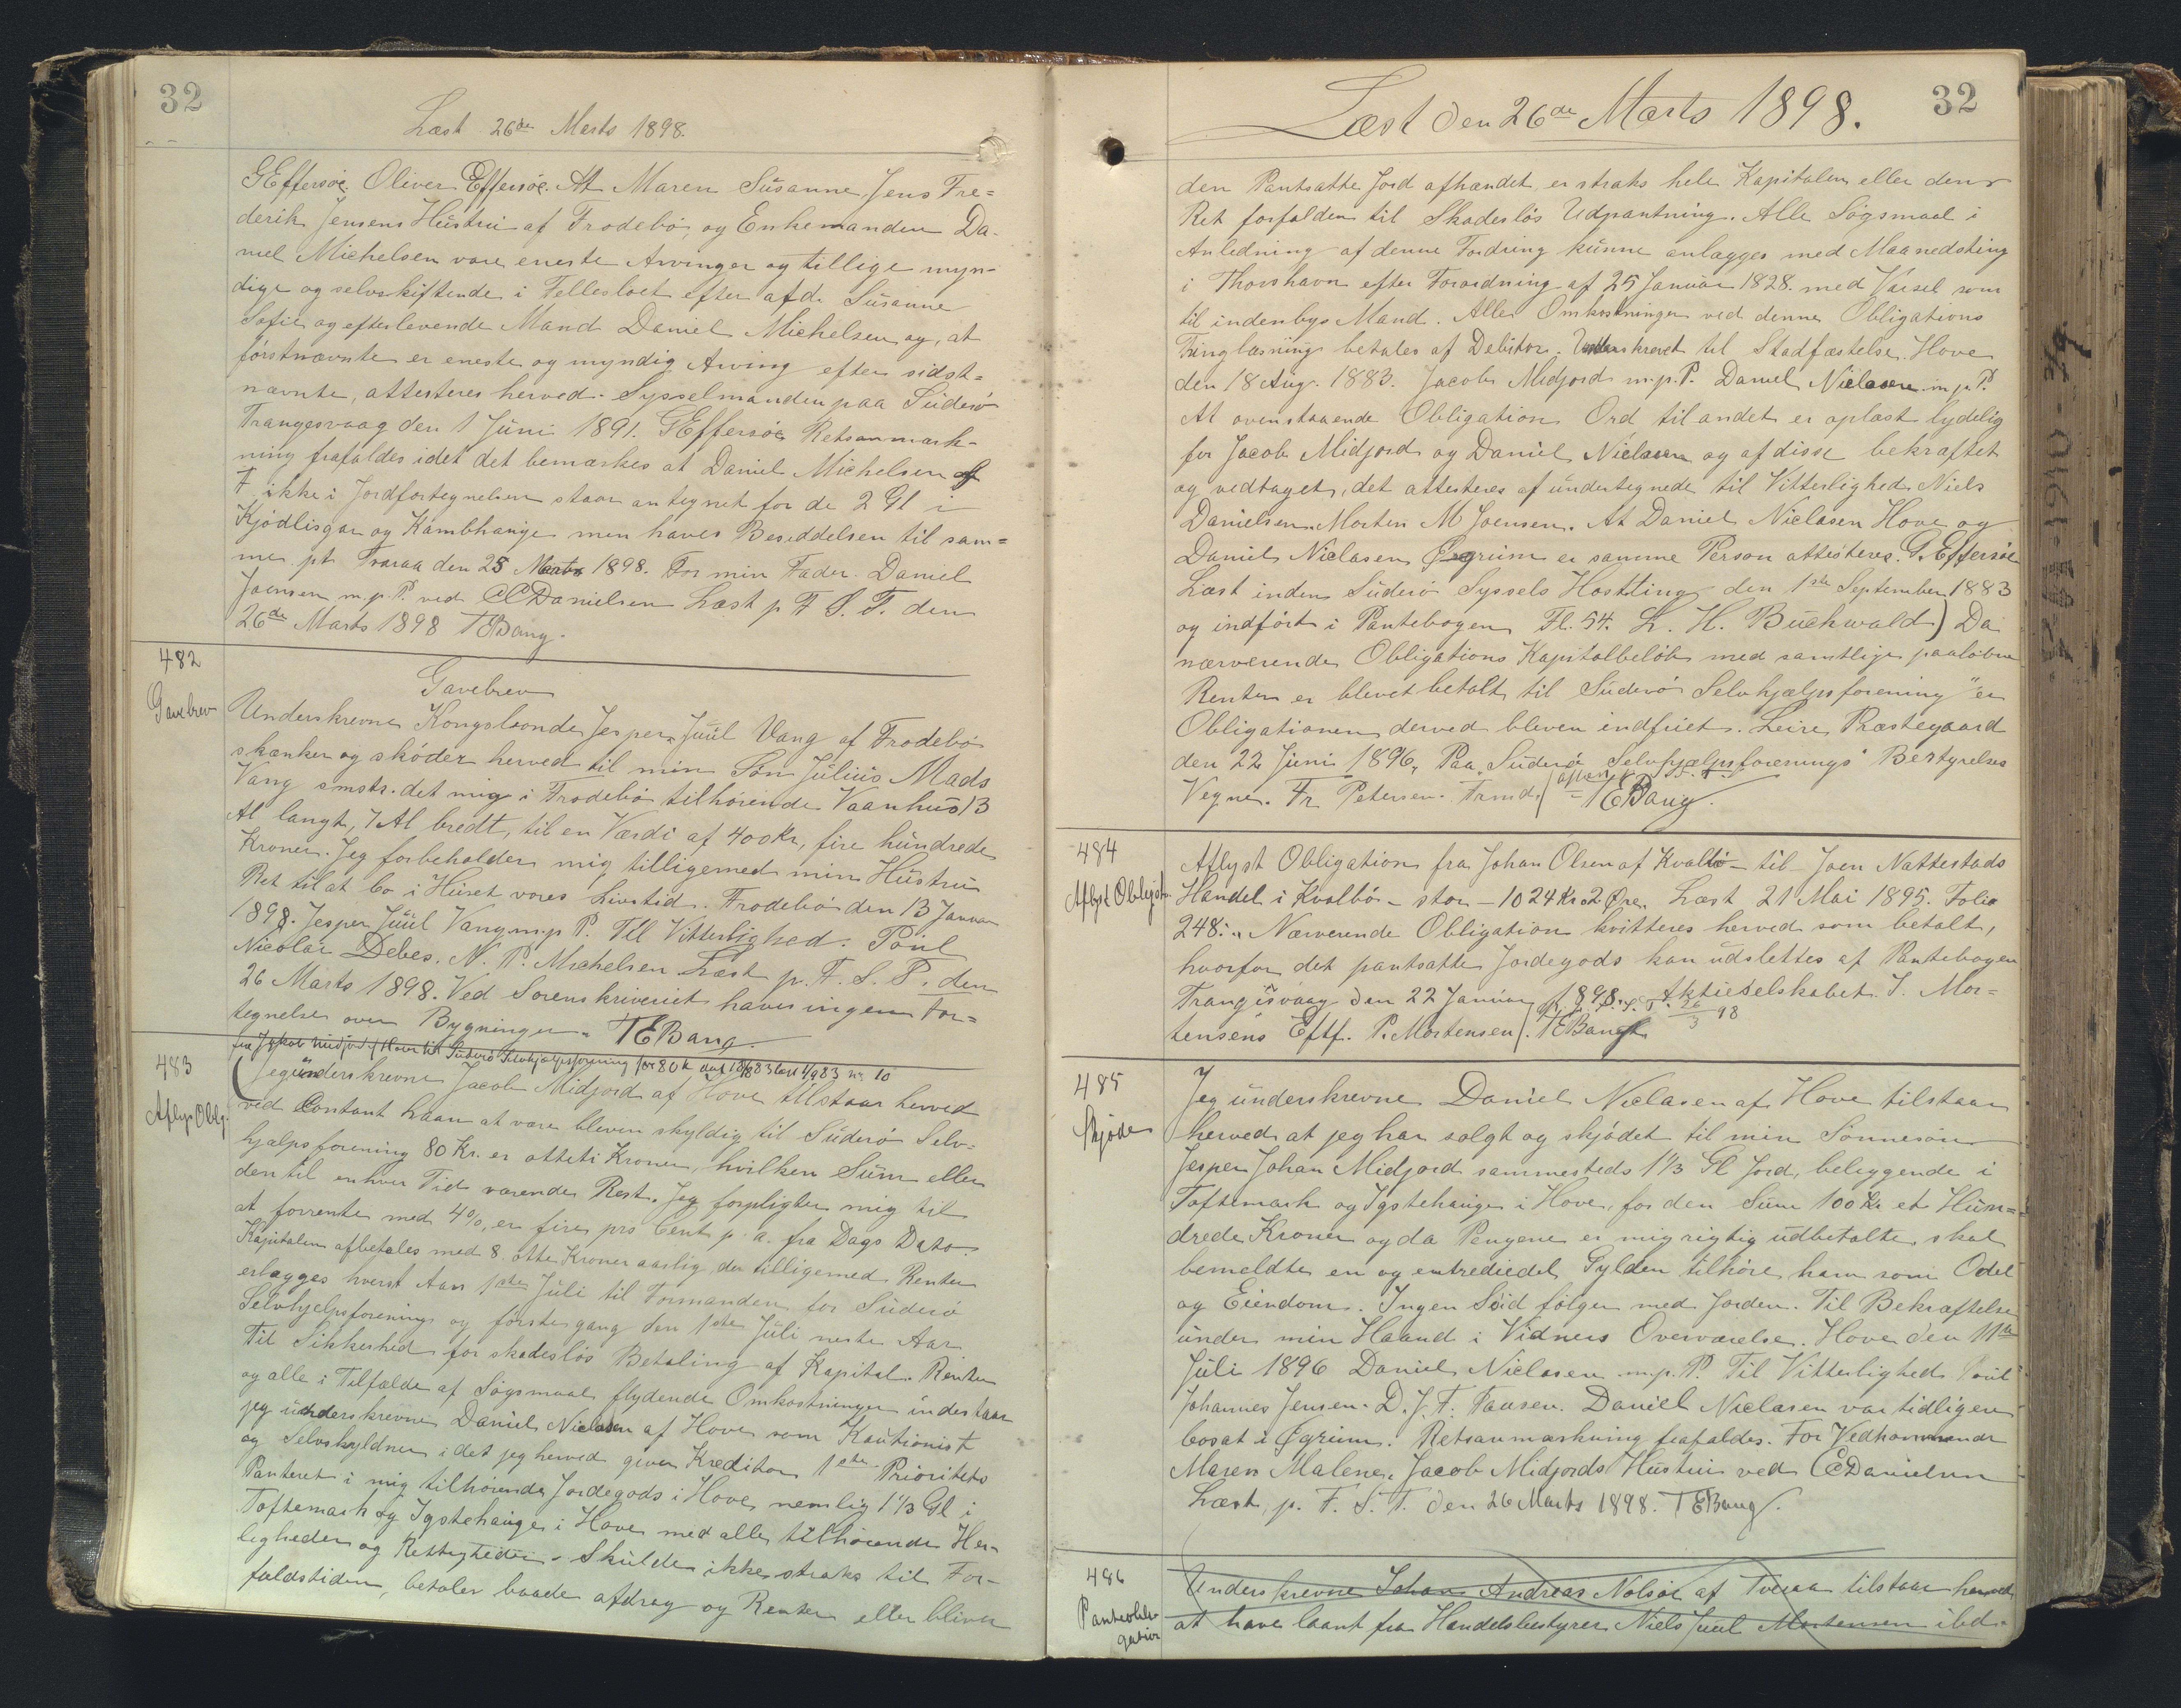 32
Læst 26de Marts 1898.
GEffersöe. Oliver Effersöe. At Maren Susanne, Jens Fre=
derik Jensens Hustru af Frodebö, og Enkemanden Da-
niel Michelsen vare eneste Arvinger og tillige myn-
dige og selvskiftende i Fellesboet efter afd. Susanne
Sofie og efterlevende Mand Daniel Michelsen og, at
förstnævnte er eneste og myndig Arving efter sidst=
nævnte, attesteres herved. Sysselmanden paa Suderö
Trangesvaag den 1 Juni 1891. GEffersöe Retsanmærk-
ning frafaldes idet det bemærkes at Daniel Michelsen af
F. ikke i Jordfortegnelsen staar antegnet for de 2 Gl i
Kjödlisgar og Kambhauge men haves Besiddelsen til sam=
me. pt. Tværaa den 25 Marts 1898. For min Fader. Daniel
Joensen m.p.P. ved CCDanielsen Læst p F. S. T. den
26de Marts 1898 TEBang.
482
Gavebrev
Gavebrev
Underskrevne Kongsbonde Jesper Juul Vang af Frodebö
skænker og sköder herved til min Sön Julius Mads
Vang smsts. det mig i Frodebö tilhörende Vaanhus 13
Al langt, 7 Al bredt, til en Værdi af 400 Kr, fire hundrede
Kroner. Jeg forbeholder mig tilligemed min Hustru
Ret til at bo i Huset vores Livstid. Frodebö den 13 Januar
1898. Jesper Juul Vang m.p P. Til Vitterlighed: Poul
Nicolai Debes. N. P. Michelsen Læst p. F. S. T. den
26 Marts 1898. Ved Sorenskriveriet haves ingen For=
tegnelse over Bygninger. TEBang.
fra Jakob Midjord af Hove til Suderö Selvhjælpsforening for 80 k dat 18/8 83 læst 1/9 83 No 10
483
Aflyst Oblg.
(Jeg underskrevne Jacob Midjord af Hove tilstaar herved
ved Contant Laan at være bleven skyldig til Suderö Selv-
hjælpsforening 80 Kr. er otteti Kroner, hvilken Sum eller
den til enhver Tid værende Rest. Jeg forpligter mig til
at forrente med 4%, er fire pro Cent p. a. fra Dags Dato
Kapitalen afbetales med 8. otte Kroner aarlig der tilligemed Renter
erlægges hverst Aars 1ste Juli til Formanden for Suderö
Selvhjelpsforening og förste gang den 1ste Juli neste Aar
Til Sikkerhed for skadeslös Betaling af Kapital. Renter
og alle i Tilfælde af Sögsmaal flydende Omkostninger indestaar
jeg underskrevne Daniel Niclasen af Hove som Kautionist
og Selvskyldner i det jeg herved giver Kreditor 1ste Prioritets
Panteret i mig tilhörende Jordegods i Hove, nemlig 1 1/3 Gl i
Toftemark og Igstehauge i Hove med alle tilhörende Her-
ligheder og Rettigheder. Skulde ikke straks til For-
faldstiden, betaler baade afdrag og Renter eller bliver
32
Læst den 26de Marts 1898.
den Pantsatte Jord afhændet, er straks hele Kapitalen eller dens
Ret forfalden til Skadeslös Udpantning. Alle Sögsmaal i
Anledning af denne Fordring kunne anlægges med Maanedsting
i Thorshavn efter Forordning af 25 Januar 1828. med Varsel som
til indenbys Mand. Alle Omkostninger ved denne Obligations
Tinglæsning betales af Debitor. Underskrevet til Stadfæstelse. Hove
den 18 Aug. 1883. Jacob Midjord m.p.P. Daniel Niclasen m.p.P.
At ovenstaaende Obligation Ord til andet er oplæst lydelig
for Jacob Midjord og Daniel Niclasen og af disse bekræftet
og vedtaget, det attesteres af undertegnede til Vitterlighed Niels
Danielsen. Morten M Joensen. At Daniel Niclasen Hove og
Daniel Niclasen Øgrim er samme Person attesteres. G. Effersöe
Læst inden Suderö Syssels Höstting den 1ste September 1883
og indfört i Pantebogen Fl. 54. L. H. Buchwald) Da
nærværende Obligations Kapitalbelöb med samtlige paalöbne
Renter er blevet betalt til „Suderö Selvhjælpsforening" er
Obligationen derved bleven indfriet. Leire Præstegaard
den 22 Juni 1896, Paa „Suderö Selvhjælpsforenings" Bestyrelses
Vegne. Fr. Petersen. Frmd. TEBang.
484
Aflyst Obligtn.
Aflyst Obligation fra Johan Olsen af Kvalbö - til Joen Nattestads
Handel i Kvalbö - stor - 1024 Kr. 2 Øre. Læst 21 Mai 1895. Folio
248: „ Nærværende Obligation kvitteres herved som betalt,
hvorfor det pantsatte Jordegods kan udslettes af Pantebogen
Trangisvaag den 22 Januar 1898. Aktieselskabet J. Mor=
tensens Eftf. P. Mortensen/. p. F. S. T. 26/3 98 TEBang
485
Skjöde
Jeg underskrevne Daniel Niclasen af Hove tilstaar
herved at jeg har solgt og skjödet til min Sönnesön
Jesper Johan Midjord sammesteds 1 1/3 Gl Jord, beliggende i
Toftemark og Igstehauge i Hove, for den Sum 100 Kr et Hun=
drede Kroner og da Pengene er mig rigtig udbetalte, skal
bemeldte en og entrediedel Gylden tilhöre ham som Odel
og Eiendom. Ingen Söid fölger med Jorden. Til Bekræftelse
under min Haand i Vidners Overværelse. Hove den 11te
Juli 1896 Daniel Niclasen m.p.P. Til Vitterlighed: Poul
Johannes Jensen. D. J. F. Pausen. Daniel Niclasen var tidligere
bosat i Øgrim. Retsanmærkning frafaldes. For Vedkommende
Maren Malene, Jacob Midjords Hustru ved CCDanielsen
Læst p. F. S. T. den 26 Marts 1898. TEBang.
486
Panteobli-
gation
Underskrevne Johan Andreas Nolsöe af Tveraa tilstaar herved
at have laant fra Handelsbestyrer Niels Juul Mortensen ibd.